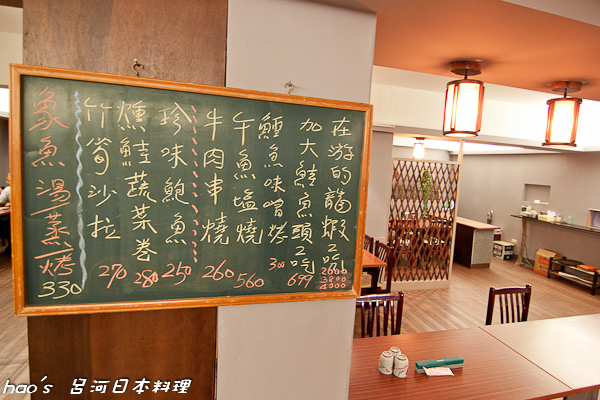 在游的龍蝦2吃 2600 3800 4000
加大鮭魚頭2吃 699
鱈魚味噌烤 300
午魚塩燒 560
牛肉串燒 260
珍味鮑魚 250
燻鮭蔬菜卷 280
竹筍沙拉 270
象魚湯蒸烤 330
hao's 呂河日本料理